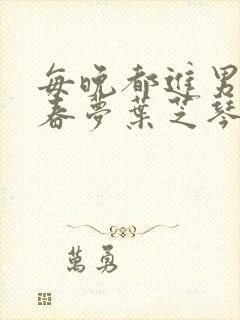 每晚都進男
春夢葉芝琴
萬勇